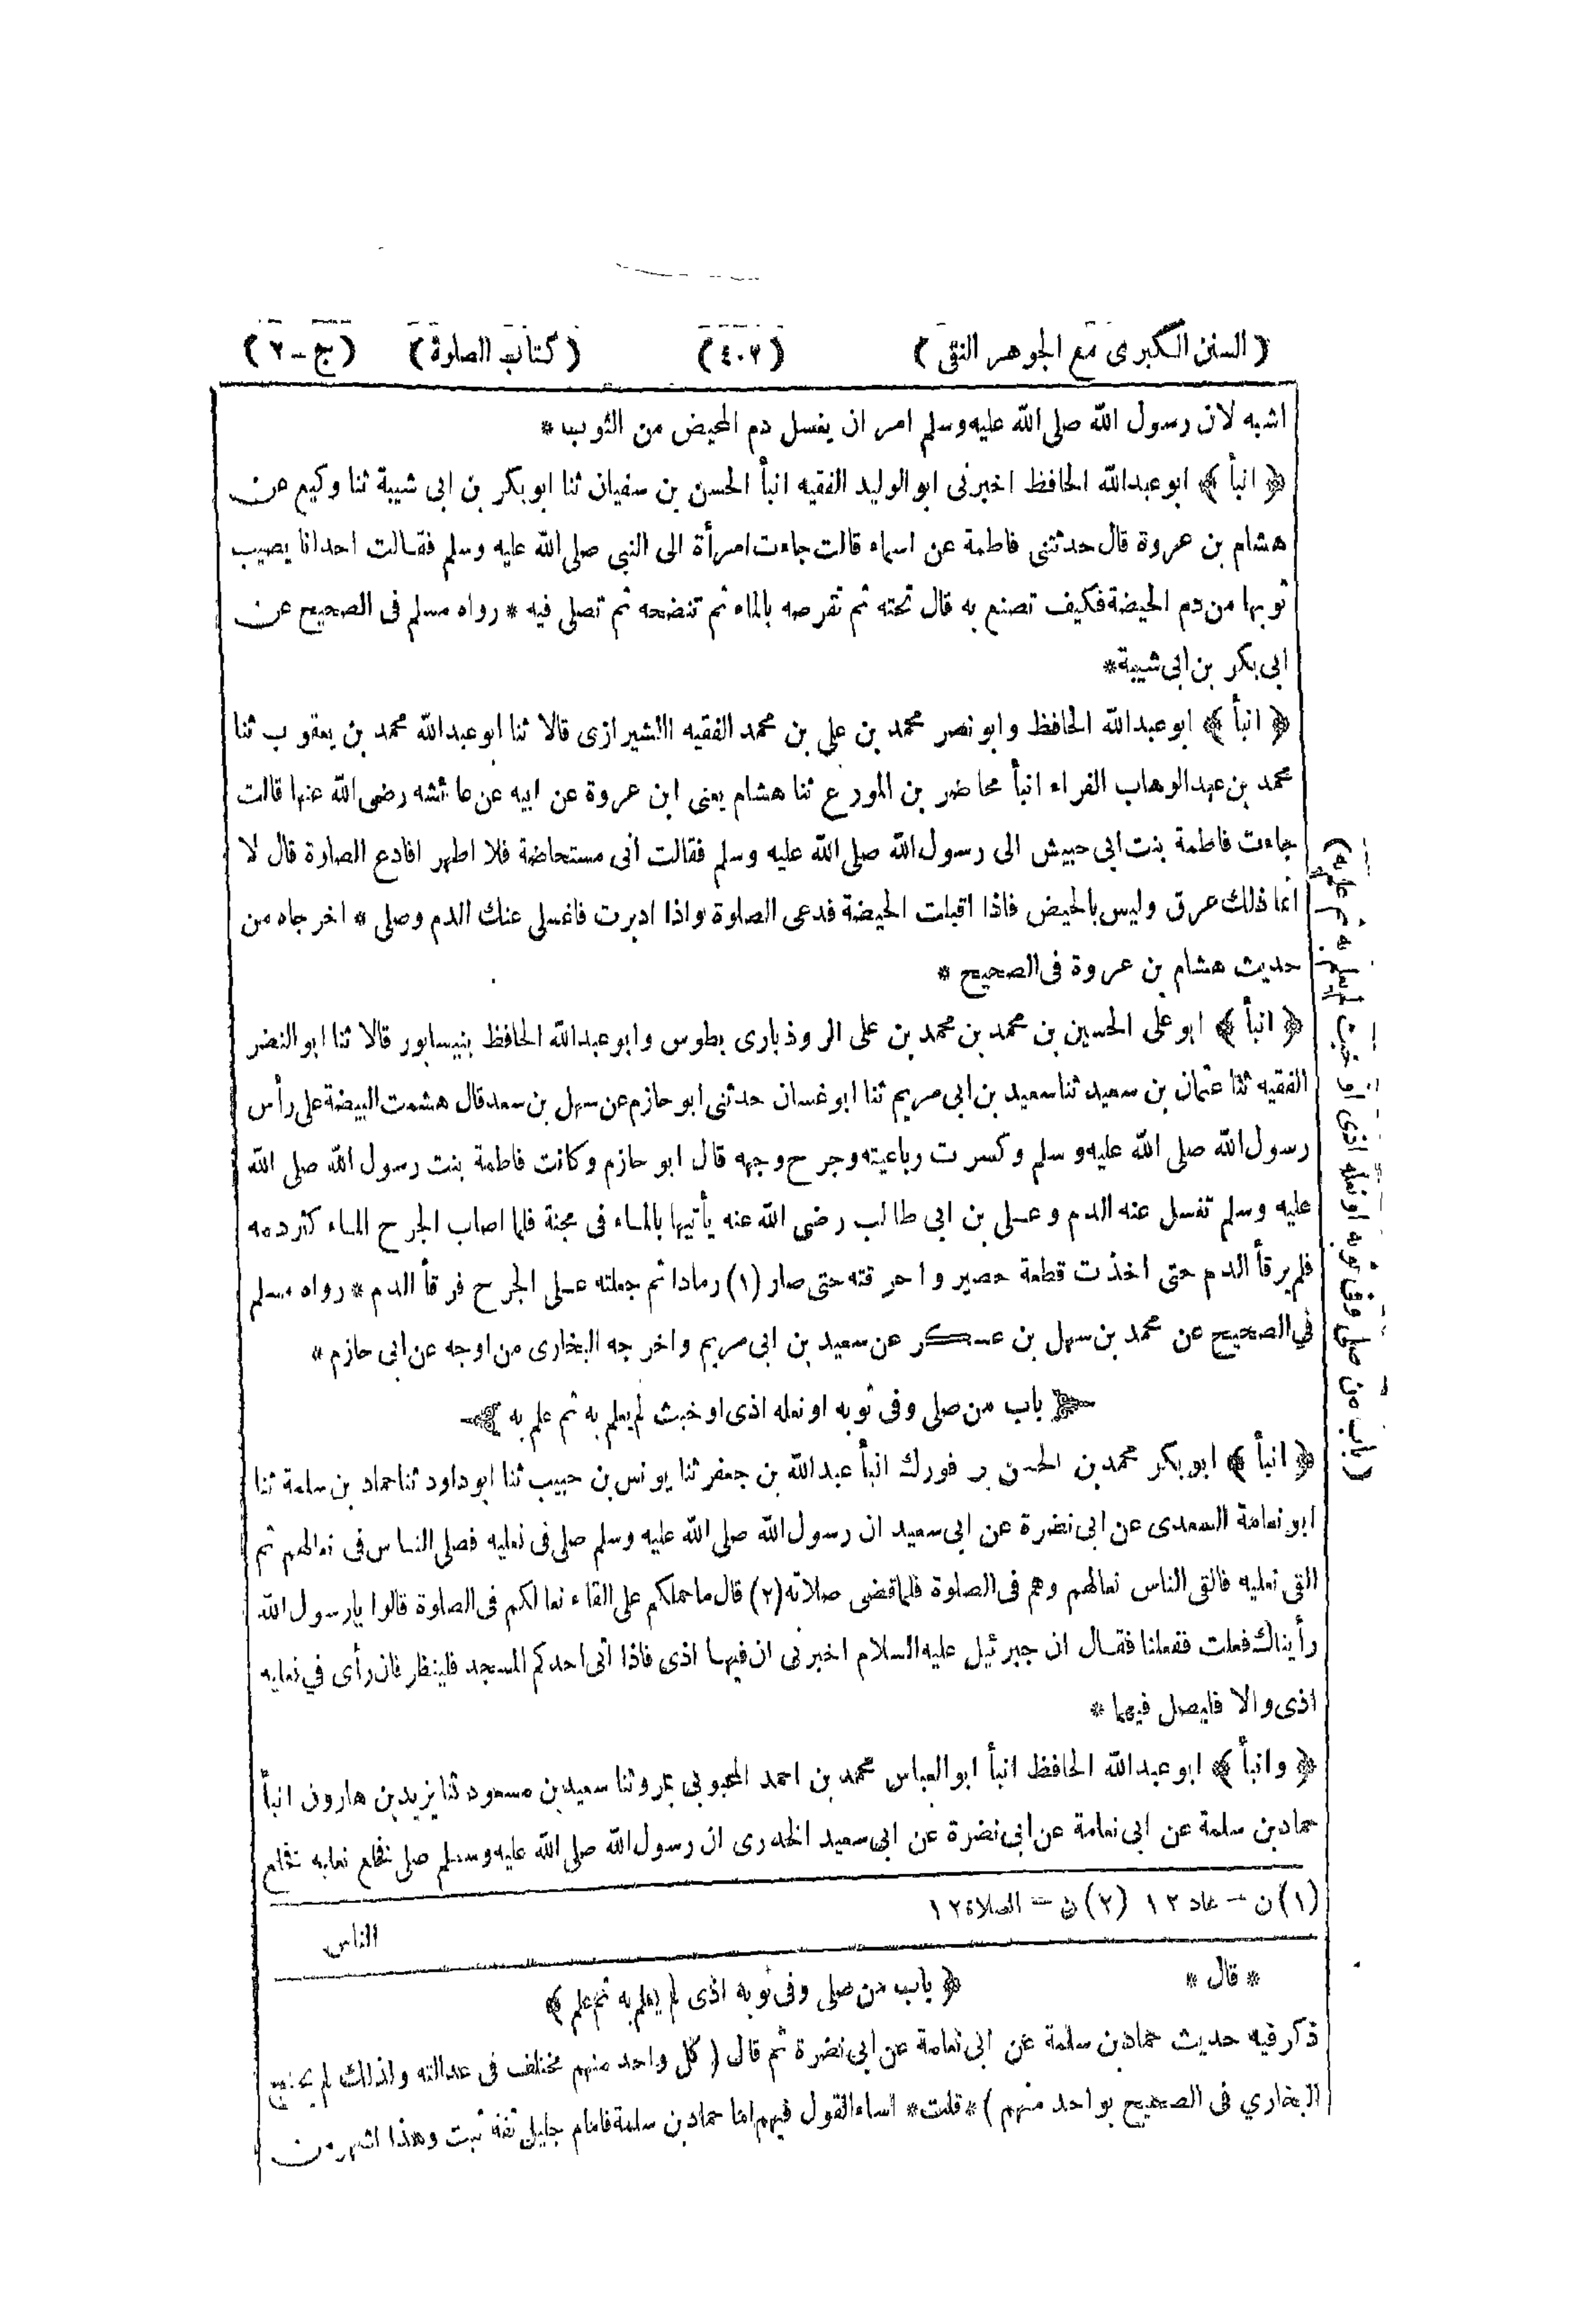 ( السنن الكبرى مع الجوهر النقى ) (٤٠٢) ( كتاب الصلوة ) ( ج - ٢ )
اشبه لان رسول الله صلى الله عليه وسلم امر ان يغسل دم المحيض من الثوب *
﴿ انبأ ﴾ ابو عبدالله الحافظ اخبرنى ابو الوليد الفقيه انبأ الحسن بن سفيان ثنا ابو بكر بن ابى شيبة ثنا وكيع عن
هشام بن عروة قال حدثتنى فاطمة عن اسماء قالت جاءت امرأة الى النبى صلى الله عليه وسلم فقالت احدانا يصيب
ثوبها من دم الحيضة فكيف تصنع به قال تحته ثم تقرصه بالماء ثم تنضحه ثم تصلى فيه * رواه مسلم فى الصحيح عن
ابى بكر بن ابى شيبة *
﴿ انبأ ﴾ ابو عبدالله الحافظ وابو نصر محمد بن على بن محمد الفقيه الشيرازى قالا ثنا ابو عبدالله محمد بن يعقوب ثنا
محمد بن عبدالوهاب الفراء انبأ محاضر بن المورع ثنا هشام يعنى ابن عروة عن ابيه عن عائشه رضى الله عنها قالت
جاءت فاطمة بنت ابى حبيش الى رسول الله صلى الله عليه وسلم فقالت انى مستحاضة فلا اطهر افادع الصلوة قال لا
انما ذلك عرق وليس بالحيض فاذا اقبلت الحيضة فدعى الصلوة واذا ادبرت فاغسلى عنك الدم وصلى * اخرجاه من
حديث هشام بن عروة فى الصحيح *
﴿ انبأ ﴾ ابو على الحسين بن محمد بن محمد بن على الروذبارى بطوس وابو عبدالله الحافظ بنيسابور قالا ثنا ابو النضر
الفقيه ثنا عثمان بن سعيد ثنا سعيد بن ابى مريم ثنا ابو غسان حدثنى ابو حازم عن سهل بن سعد قال هشمت البيضة على رأس
رسول الله صلى الله عليه وسلم وكسرت رباعيته وجرح وجهه قال ابو حازم وكانت فاطمة بنت رسول الله صلى الله
عليه وسلم تغسل عنه الدم وعلى بن ابى طالب رضى الله عنه يأتيها بالماء فى مجنة فلما اصاب الجرح الماء كثر دمه
فلم يرقأ الدم حتى اخذت قطعة حصير واحرقته حتى صار (١) رمادا ثم جعلته على الجرح فرقأ الدم * رواه مسلم
في الصحيح عن محمد بن سهل بن عسكر عن سعيد بن ابى مريم واخرجه البخارى من اوجه عن ابى حازم *
باب من صلى وفى ثوبه او نعله اذى او خبث لم يعلم به ثم علم به
﴿ انبأ ﴾ ابو بكر محمد بن الحسن بن فورك انبأ عبدالله بن جعفر ثنا يونس بن حبيب ثنا ابو داود ثنا حماد بن سلمة ثنا
ابو نعامة السعدى عن ابى نضرة عن ابى سعيد ان رسول الله صلى الله عليه وسلم صلى فى نعليه فصلى الناس فى نعالهم ثم
القى نعليه فالقى الناس نعالهم وهم فى الصلوة فلما قضى صلاته (٢) قال ما حملكم على القاء نعالكم فى الصلوة قالوا يا رسول الله
رأيناك فعلت ففعلنا فقال ان جبرئيل عليه السلام اخبرنى ان فيهما اذى فاذا اتى احدكم المسجد فلينظر فان رأى في نعليه
اذى والا فليصل فيهما *
﴿ وانبأ ﴾ ابو عبدالله الحافظ انبأ ابو العباس محمد بن احمد المحبوبى بمرو ثنا سعيد بن مسعود ثنا يزيد بن هارون انبأ
حماد بن سلمة عن ابى نعامة عن ابى نضرة عن ابى سعيد الخدرى ان رسول الله صلى الله عليه وسلم صلى فخلع نعليه فخلع
(١) ن - عاد ١٢ (٢) ن = الصلاة ١٢
الناس
* قال * ﴿ باب من صلى وفى ثوبه اذى لم يعلم به ثم علم ﴾
ذكر فيه حديث حماد بن سلمة عن ابى نعامة عن ابى نضرة ثم قال ( كل واحد منهم مختلف فى عدالته ولذلك لم يحتج
البخاري فى الصحيح بواحد منهم ) * قلت * اساء القول فيهم اما حماد بن سلمة فامام جليل ثقة ثبت وهذا اشهر من
( باب من صلى وفى ثوبه او نعله اذى او خبث لم يعلم به ثم علم به )